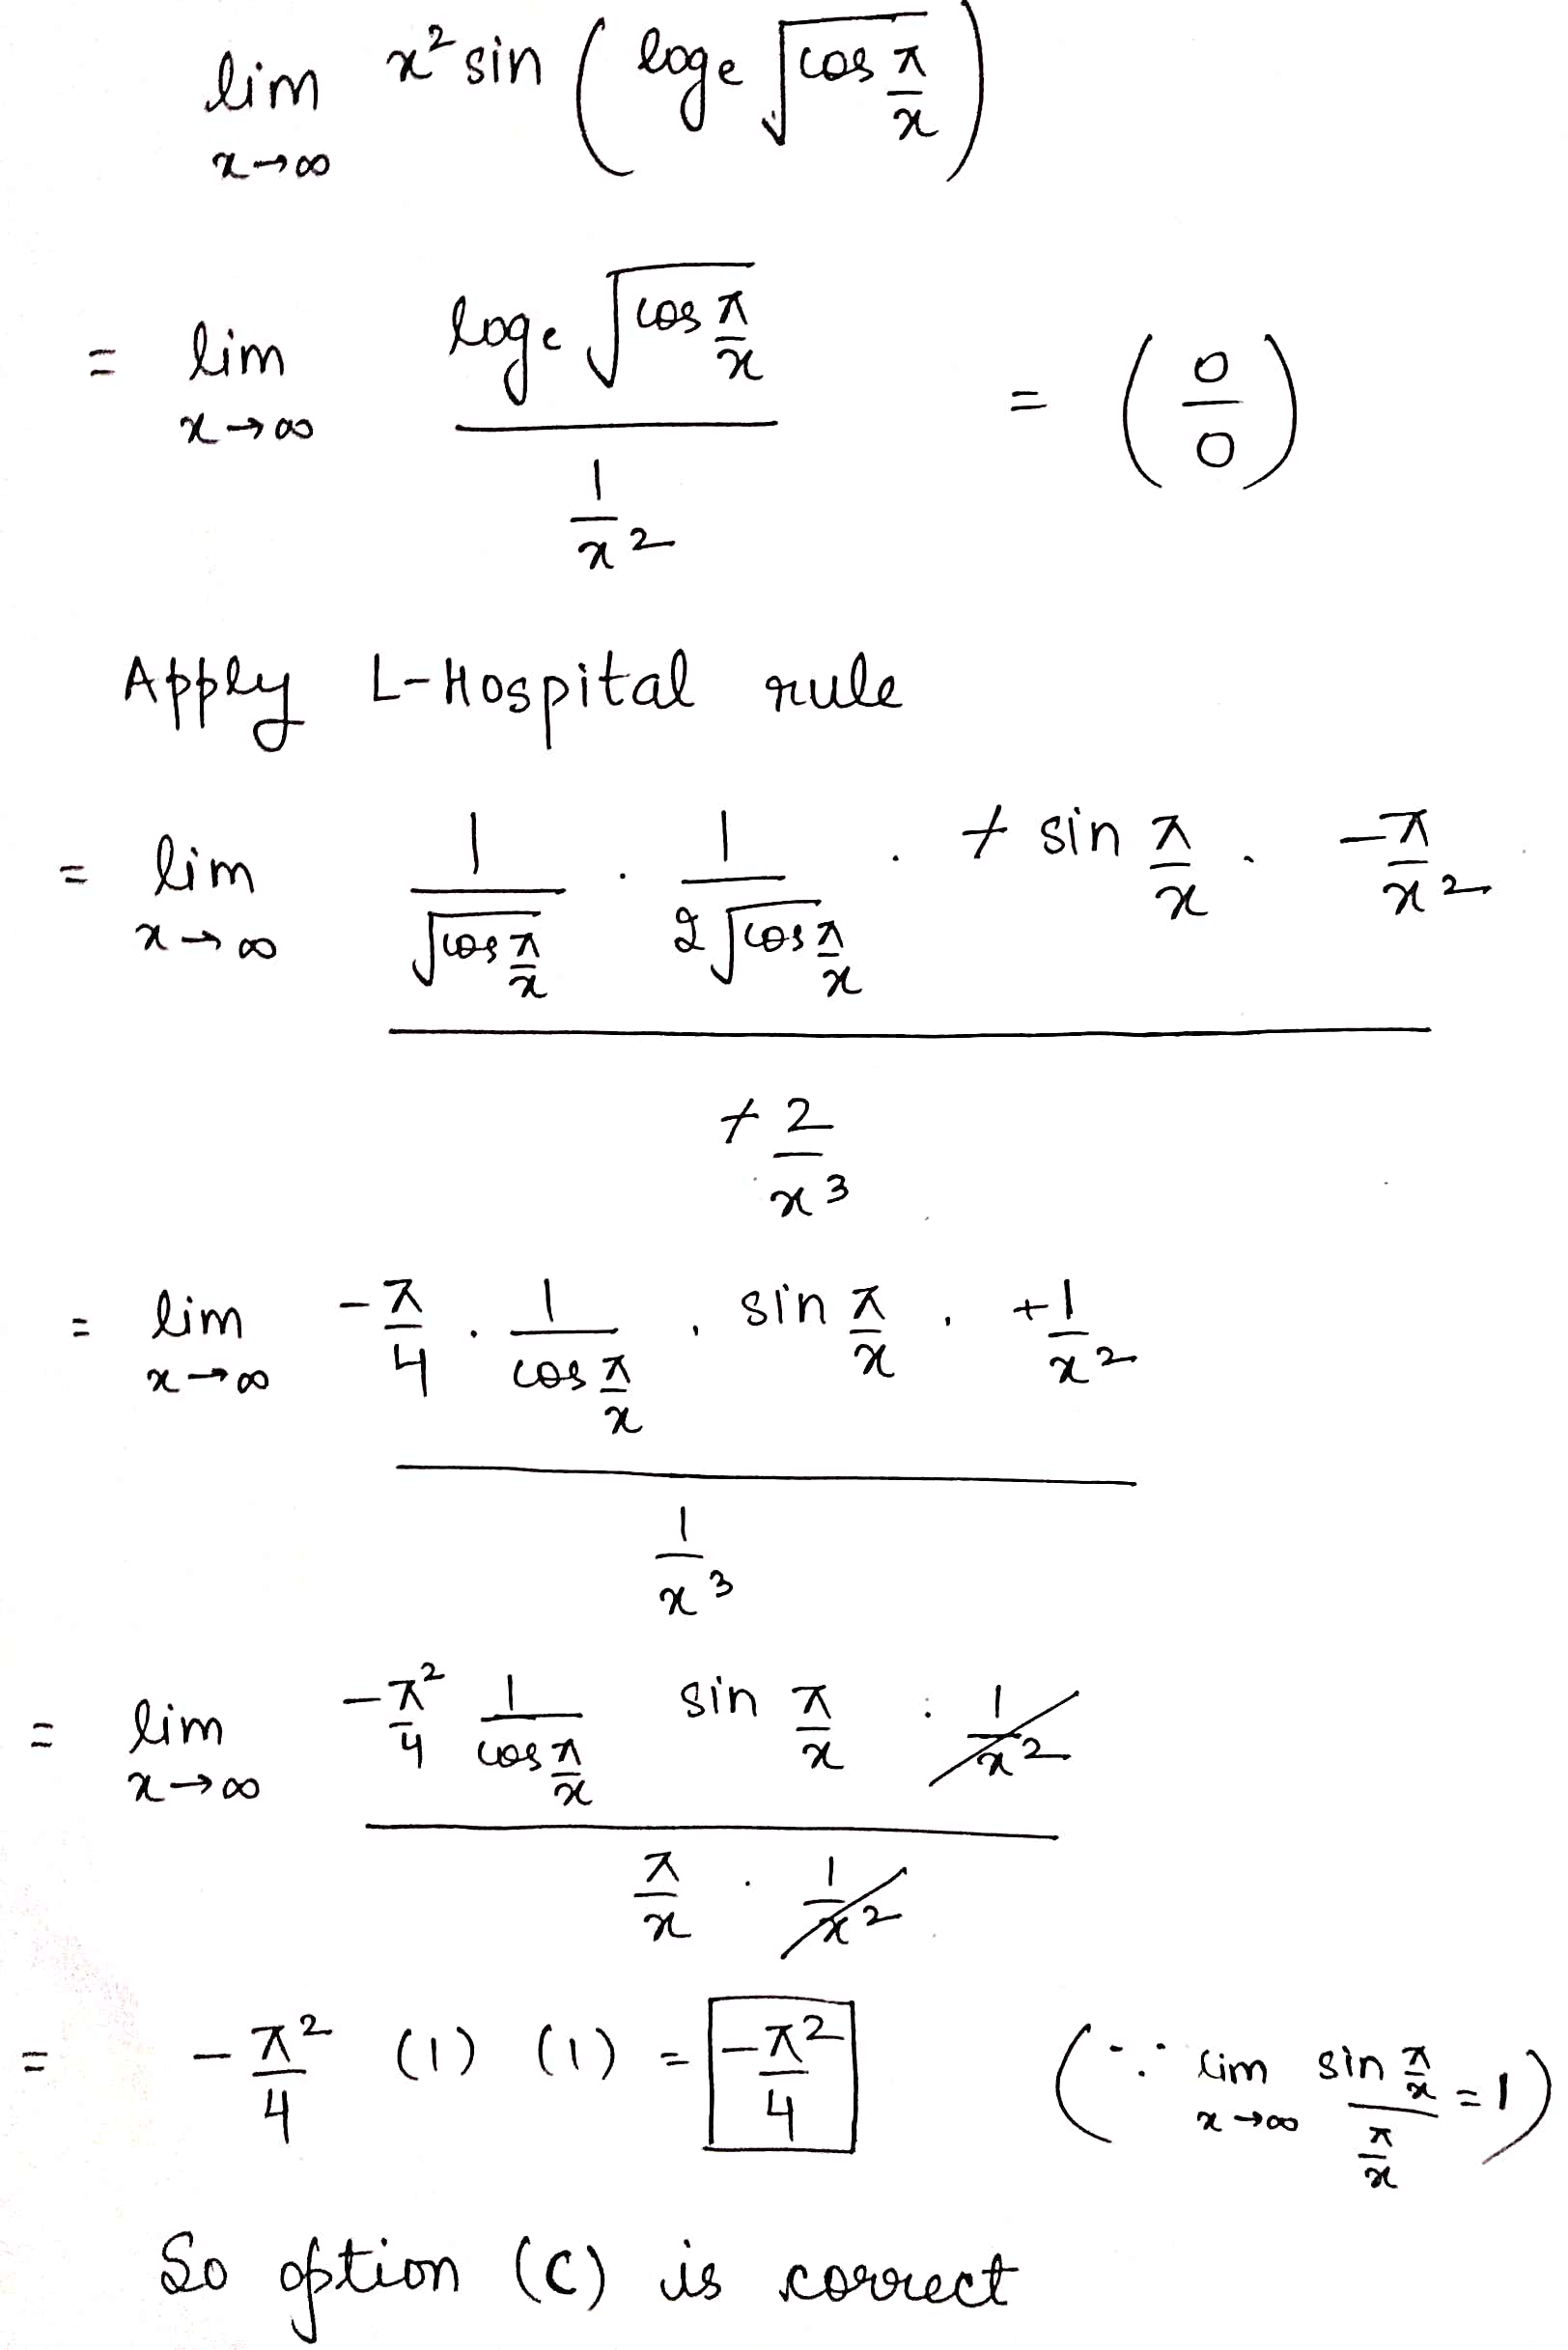 lim x→∞ x² sin ( logₑ √(cos π/x) )
= lim x→∞ (logₑ √(cos π/x)) / (1/x²) = (0/0)
Apply L-Hospital rule
= lim x→∞ (1/√(cos π/x) · 1/(2√(cos π/x)) · + sin π/x · -π/x²) / (+2/x³)
= lim x→∞ (-π/4 · 1/(cos π/x) · sin π/x · +1/x²) / (1/x³)
= lim x→∞ (-π²/4 1/(cos π/x) sin π/x · 1/x²) / (π/x · 1/x²)
= -π²/4 (1) (1) = -π²/4 (∵ lim x→∞ (sin π/x)/(π/x) = 1)
So option (C) is correct